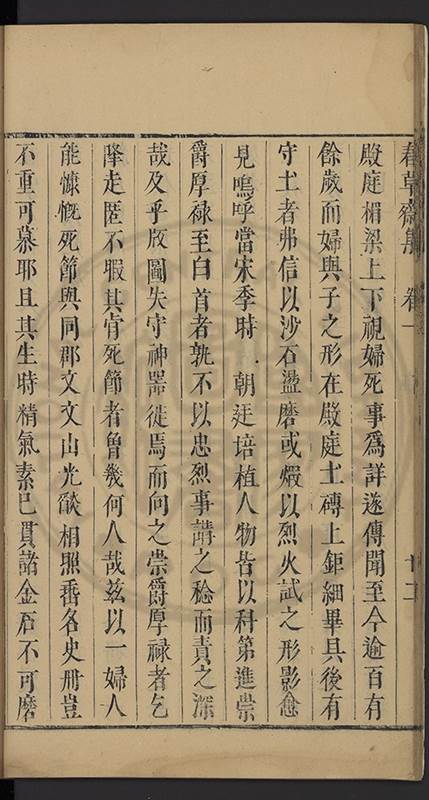 春草齋集 卷一
殿庭楣梁上下視婦死事爲詳遂傳聞至今逾百有
餘歲而婦與子之形在殿庭土磚上鉅細畢具後有
守土者弗信以沙石盪磨或煅以烈火試之形影愈
見嗚呼當宋季時朝廷培植人物皆以科第進崇
爵厚祿至白首者孰不以忠烈事講之稔而責之深
哉及乎版圖失守神器徙焉而向之崇爵厚祿者乞
降走陞不暇其肯死節者曾幾何人哉兹以一婦人
能慷慨死節與同郡文文山光燄相照垂名史冊豈
不重可慕耶且其生時精氣素已貫諸金石不可磨